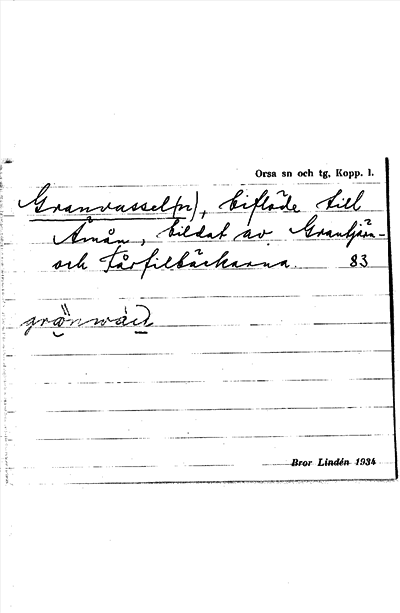 Orsa sn och tg, Kopp. l.
Granvassel(n), biflöde till
Åmån, bildat av Grantjärn-
och Fårfilbäckarna. 83
Bror Lindén 1934